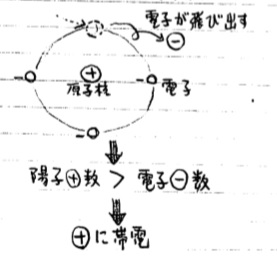 電子が飛び出す
⊖
⊕
原子核
電子
陽子⊕数 > 電子⊖数
⊕に帯電